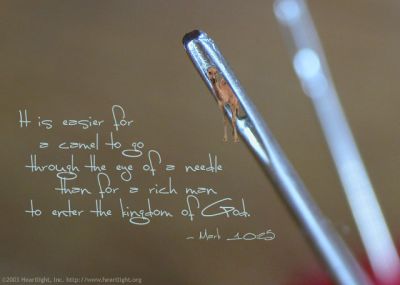 It is easier for
a camel to go
through the eye of a needle
than for a rich man
to enter the kingdom of God.
- Mark 10:25
©2003 Heartlight, Inc. http://www.heartlight.org